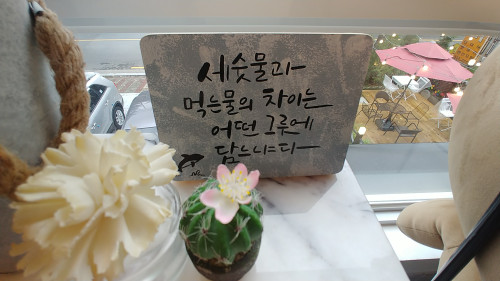 세숫물과
먹는물의 차이는
어떤 그릇에
담느냐다